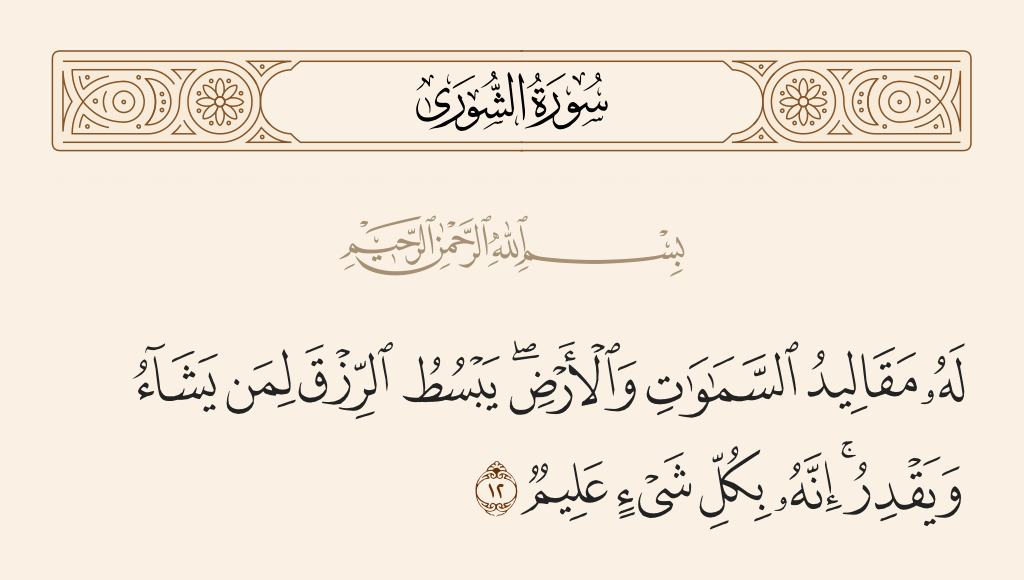 سُورَةُ الشُّورَىٰ
بِسْمِ ٱللَّهِ ٱلرَّحْمَٰنِ ٱلرَّحِيمِ
لَهُۥ مَقَالِيدُ ٱلسَّمَٰوَٰتِ وَٱلْأَرْضِ ۖ يَبْسُطُ ٱلرِّزْقَ لِمَن يَشَآءُ
وَيَقْدِرُ ۚ إِنَّهُۥ بِكُلِّ شَىْءٍ عَلِيمٌ ١٢